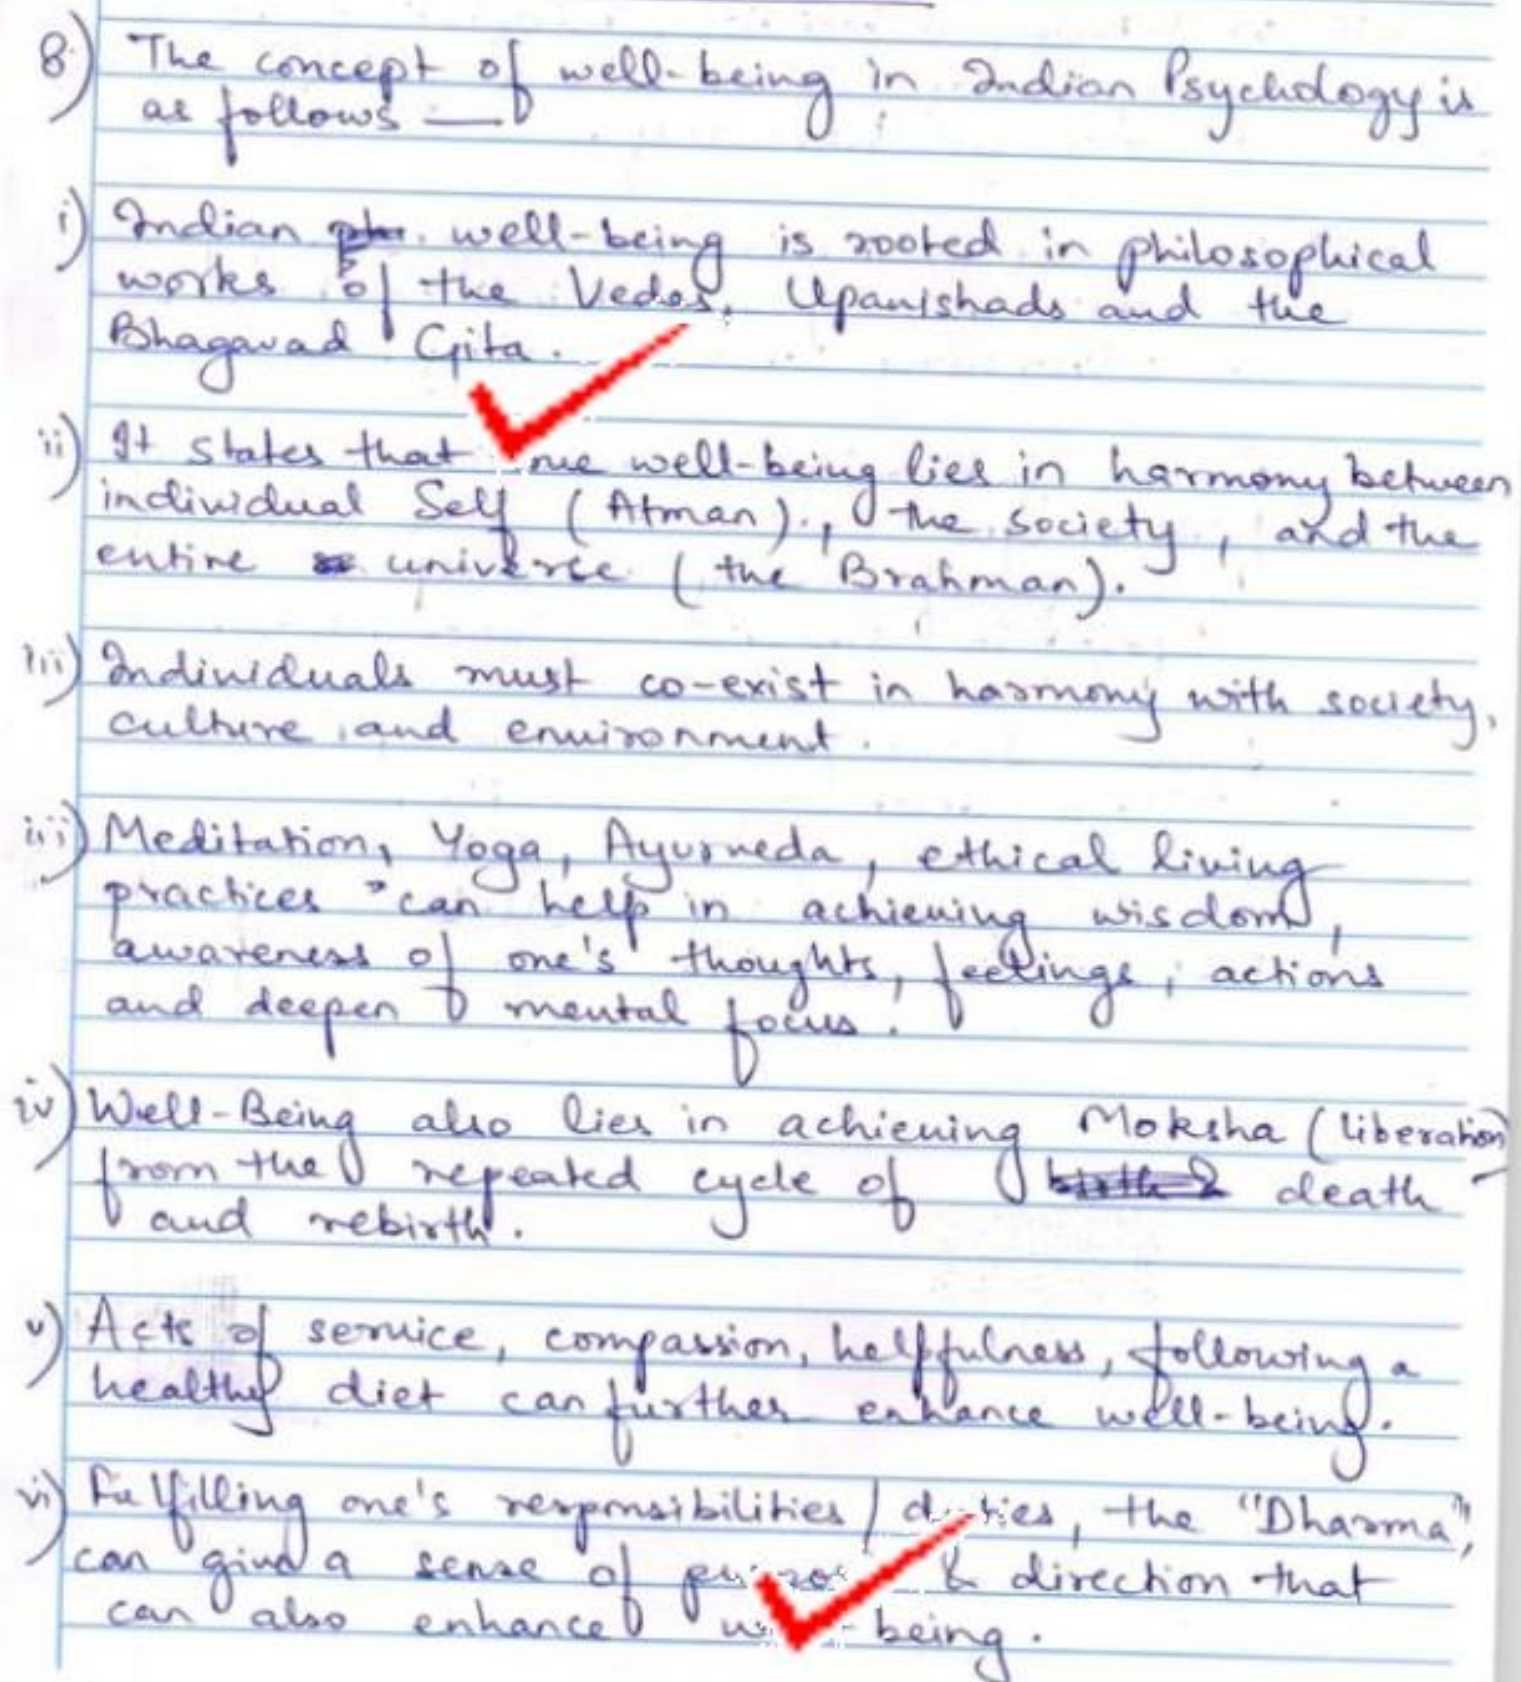 8) The concept of well-being in Indian Psychology is
as follows —
i) Indian well-being is rooted in philosophical
works of the Vedas, Upanishads and the
Bhagavad Gita.
ii) It states that well-being lies in harmony between
individual Self (Atman)., the society, and the
entire universe (the Brahman).
iii) Individuals must co-exist in harmony with society,
culture and environment.
iii) Meditation, Yoga, Ayurveda, ethical living
practices can help in achieving wisdom,
awareness of one's thoughts, feelings, actions
and deepen mental focus.
iv) Well-Being also lies in achieving Moksha (liberation)
from the repeated cycle of death
and rebirth.
v) Acts of service, compassion, helpfulness, following a
healthy diet can further enhance well-being.
vi) Fulfilling one's responsibilities / duties, the "Dharma",
can give a sense of & direction that
can also enhance being.